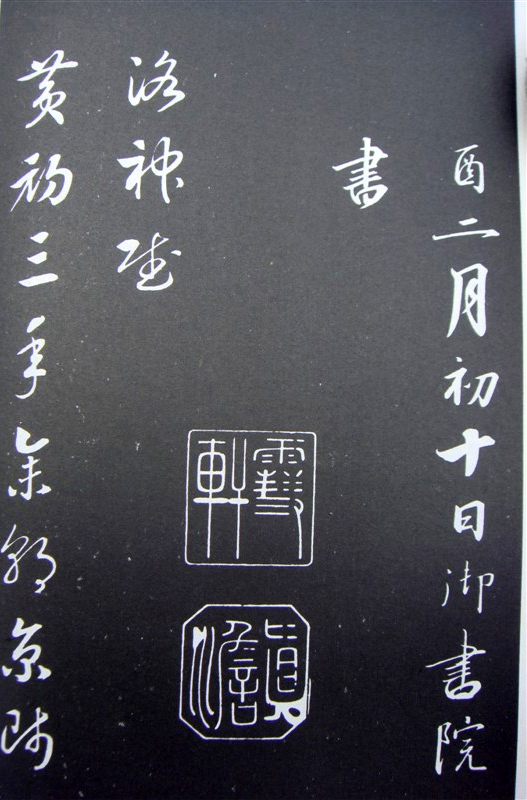 酉二月初十日御書院
書
雪軒
眞澹
洛神賦
黃初三年余朝京師